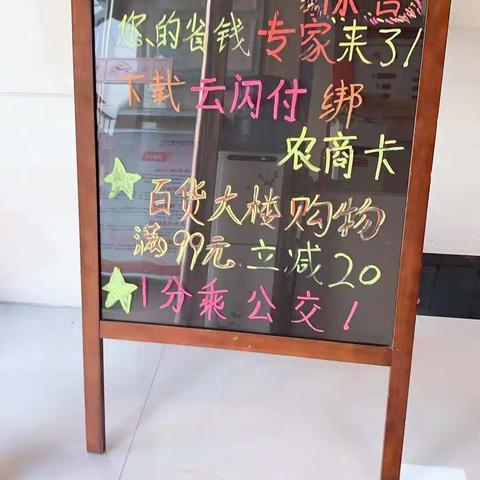 您的省钱专家来了!
下载云闪付绑
农商卡
百货大楼购物
满99元立减20
1分乘公交!